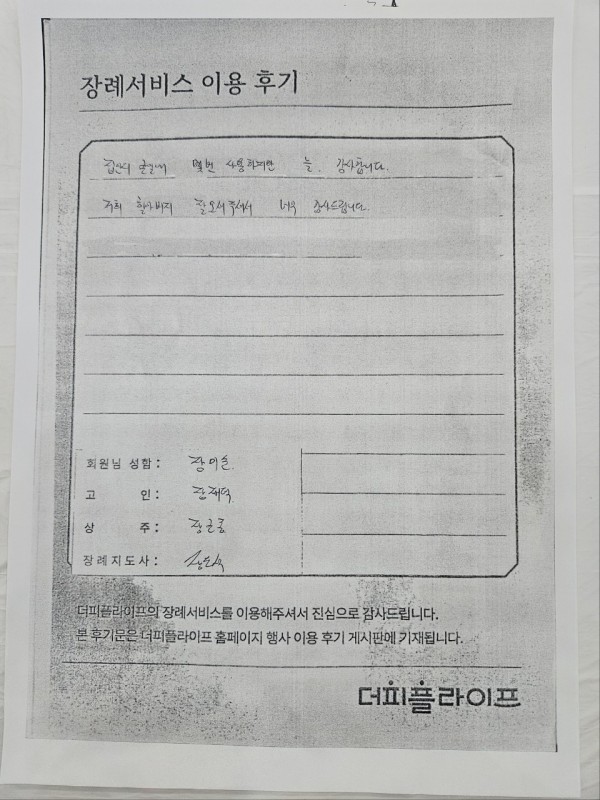 장례서비스 이용 후기
몇번 사용하지만 늘. 감사합니다.
저희 할아버지 잘 모셔주셔서 너무 감사드립니다.
회원님 성함 : 장이슬.
고 인 :
상 주 :
장례지도사 :
더피플라이프의 장례서비스를 이용해주셔서 진심으로 감사드립니다.
본 후기문은 더피플라이프 홈페이지 행사 이용 후기 게시판에 기재됩니다.
더피플라이프